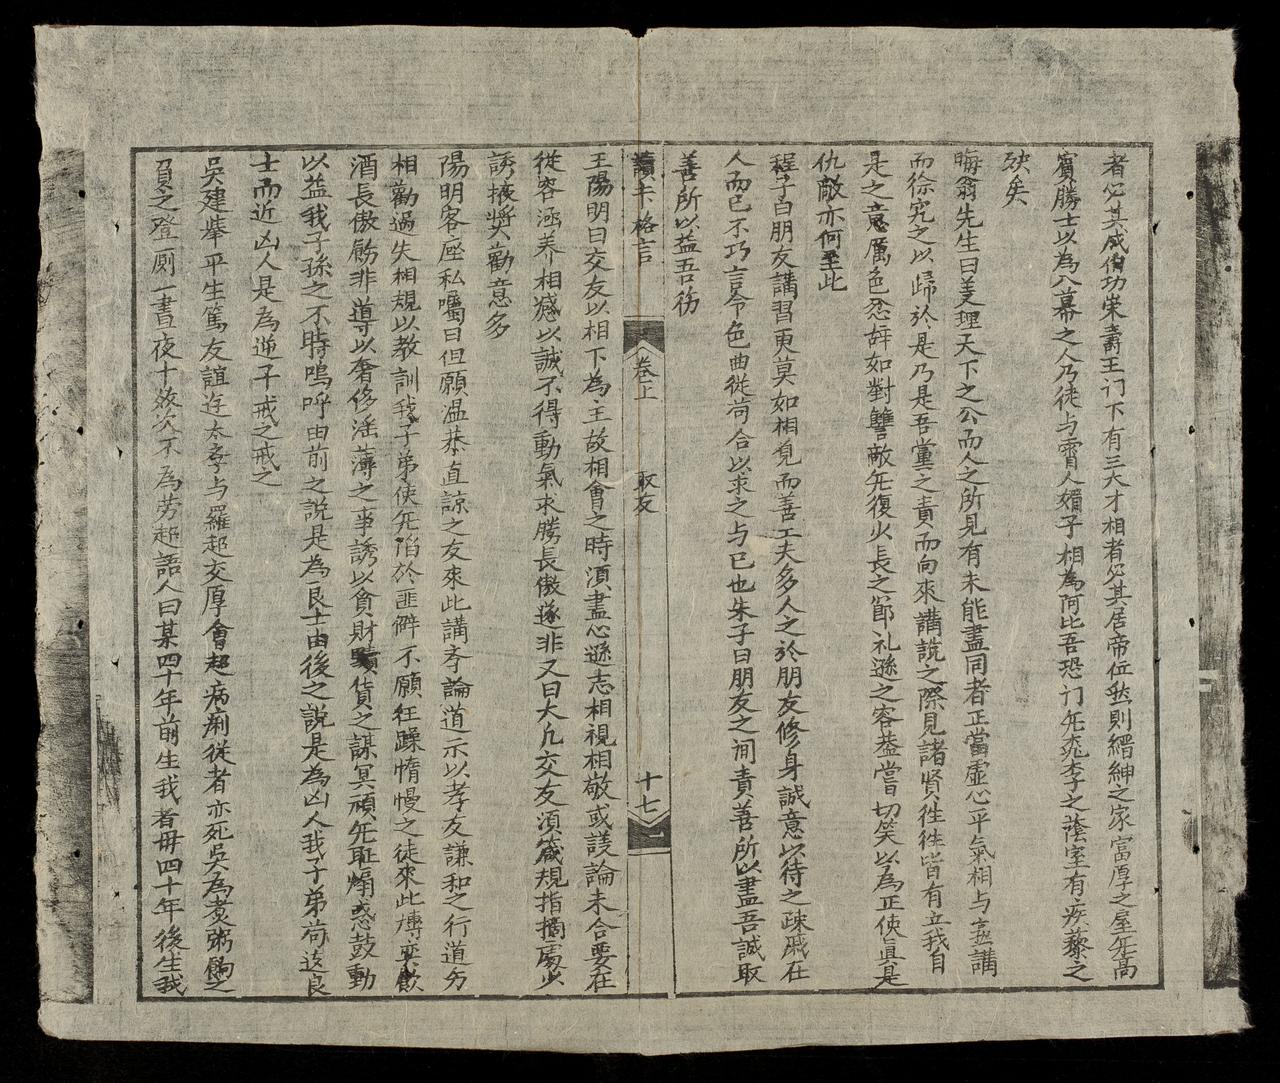 者必其成伯功宋壽王门下有三大才相者必其居帝位然则縉紳之家富厚之室无高
賓勝士以為入幕之人乃徒与賓人媚子相為阿比吾恐门无桃李之蔭室有疾藜之
殃矣
晦翁先生曰義理天下之公而人之所見有未能盡同者正當虚心平氣相与熟講
而徐究之以歸於是乃是吾黨之責而向來講說之際見諸賢徃徃皆有立我自
是之意厲色忿辞如對讐敵无復少長之節礼遜之容盖嘗切笑以為正使眞是
仇敵亦何至此
程子曰朋友講習更莫如相覌而善工夫多人之於朋友修身誠意以待之疎戚在
人而已不巧言令色曲從茍合以求之与己也朱子曰朋友之间責善所以盡吾誠取
善所以益吾徳
讀卡格言 卷上 取友 十七
王陽明曰交友以相下為主故相會之時須盡心遜志相視相敬或議論未合要在
從容涵养相感以誠不得動氣求勝長傲遂非又曰大凢交友須箴規指摘處少
誘掖奬勸意多
陽明客座私囑曰但願温恭直諒之友來此講斈論道示以孝友謙和之行道为
相勸過失相規以教訓我子弟使无陷於匪僻不願狂躁惰慢之徒來此博奕飲
酒長傲飭非導以奢侈滛薄之事誘以貪財黷貨之謀冥頑无耻煽惑鼓動
以益我子孫之不時嗚呼由前之說是為良士由後之說是為凶人我子弟茍逺良
士而近凶人是為逆子戒之戒之
吳建舉平生篤友誼逰太斈与羅起交厚會起病痢從者亦死吳為煮粥餉之
負之登厠一晝夜十数次不為劳起語人曰某四十年前生我者毋四十年後生我